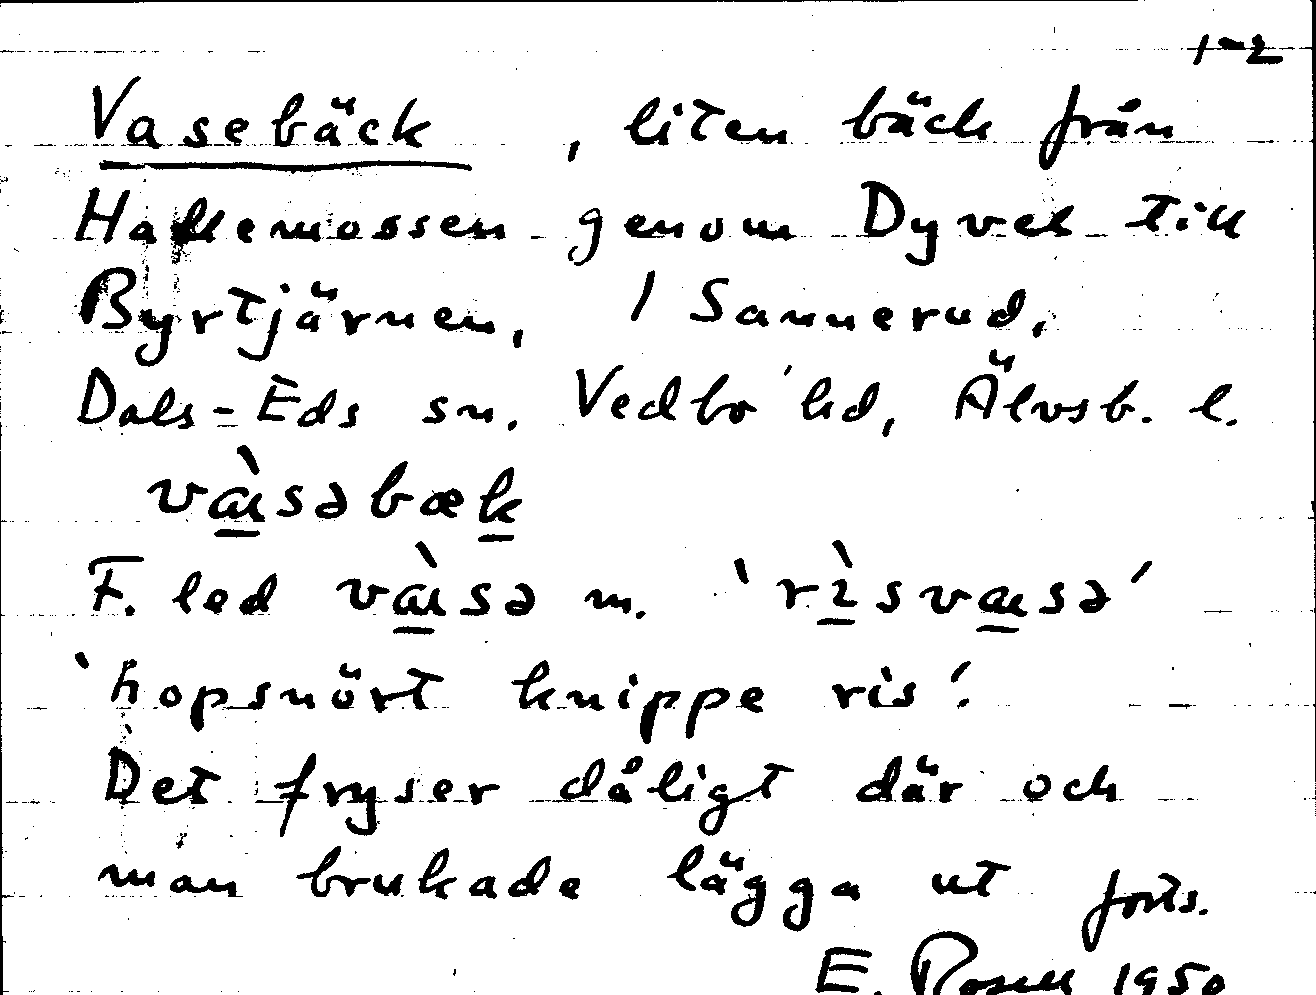 1-2
Vasebäck, liten bäck från
Hallemossen genom Dyvel till
Byrtjärnen, / Sannerud,
Dals-Eds sn. Vedbo hd, Älvsb. l.
vàsəbæk
F. led vàsə m. ‘rìsvasə’
‘hopsnört knippe ris’.
Det fryser dåligt där och
man brukade lägga ut forts.
E. Rosell 1950